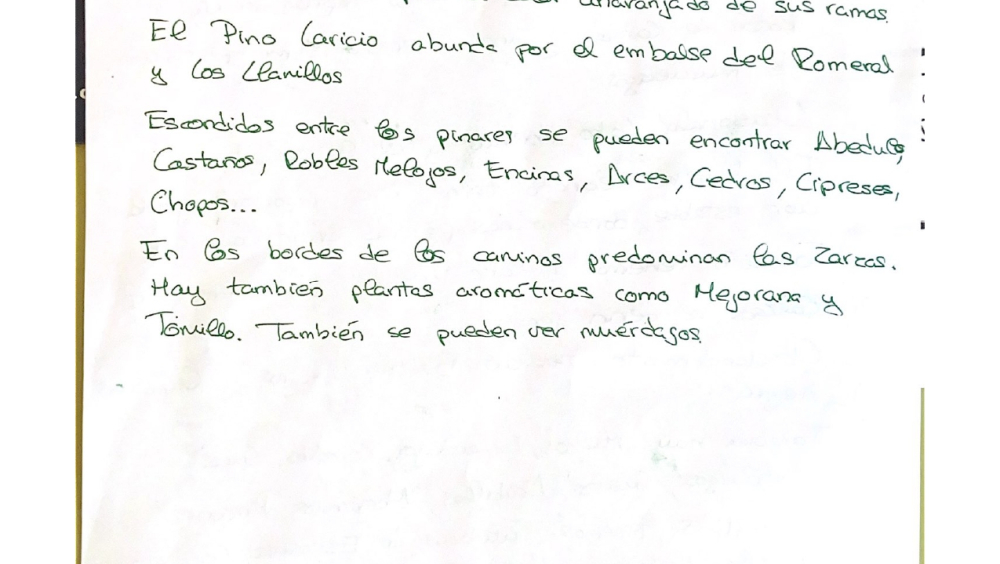 anaranjado de sus ramas.
El Pino Laricio abunda por el embalse del Romeral
y los Llanillos
Escondidos entre los pinares se pueden encontrar Abedules,
Castaños, Robles Melojos, Encinas, Arces, Cedros, Cipreses,
Chopos...
En los bordes de los caminos predominan las Zarzas.
Hay también plantas aromáticas como Mejorana y
Tomillo. También se pueden ver muérdagos.